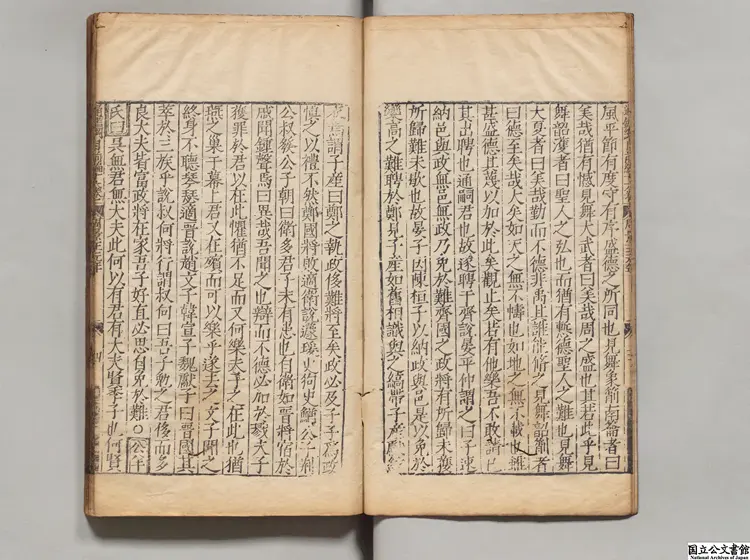 風平節有度守有序盛德之所同也見舞象箾南籥者曰
美哉猶有憾見舞大武者曰美哉周之盛也其若此乎見
舞韶濩者曰聖人之弘也而猶有慙德聖人之難也見舞
大夏者曰美哉勤而不德非禹其誰能脩之見舞韶箾者
曰德至矣哉大矣如天之無不幬也如地之無不載也雖
甚盛德其蔑以加於此矣觀止矣若有他樂吾不敢請已
其出聘也通嗣君也故遂聘于齊說晏平仲謂之曰子速
納邑與政無邑無政乃免於難齊國之政將有所歸未獲
所歸難未歇也故晏子因陳桓子以納政與邑是以免於
欒高之難聘於鄭見子產如舊相識與之縞帶子產獻紵
衣焉謂子產曰鄭之執政侈難將至矣政必及子子為政
慎之以禮不然鄭國將敗適衛說蘧瑗史狗史鰌公子荊
公叔發公子朝曰衛多君子未有患也自衛如晉將宿於
戚聞鍾聲焉曰異哉吾聞之也辯而不德必加於戮夫子
獲罪於君以在此懼猶不足而又何樂夫子之在此也猶
燕之巢于幕上君又在殯而可以樂乎遂去之文子聞之
終身不聽琴瑟適晉說趙文子韓宣子魏獻子曰晉國其
萃於三族乎說叔向將行謂叔向曰吾子勉之君侈而多
良大夫皆富政將在家吾子好直必思自免於難○公羊
氏曰吳無君無大夫此何以有君有大夫賢季子也何賢
国立公文書館
National Archives of Japan